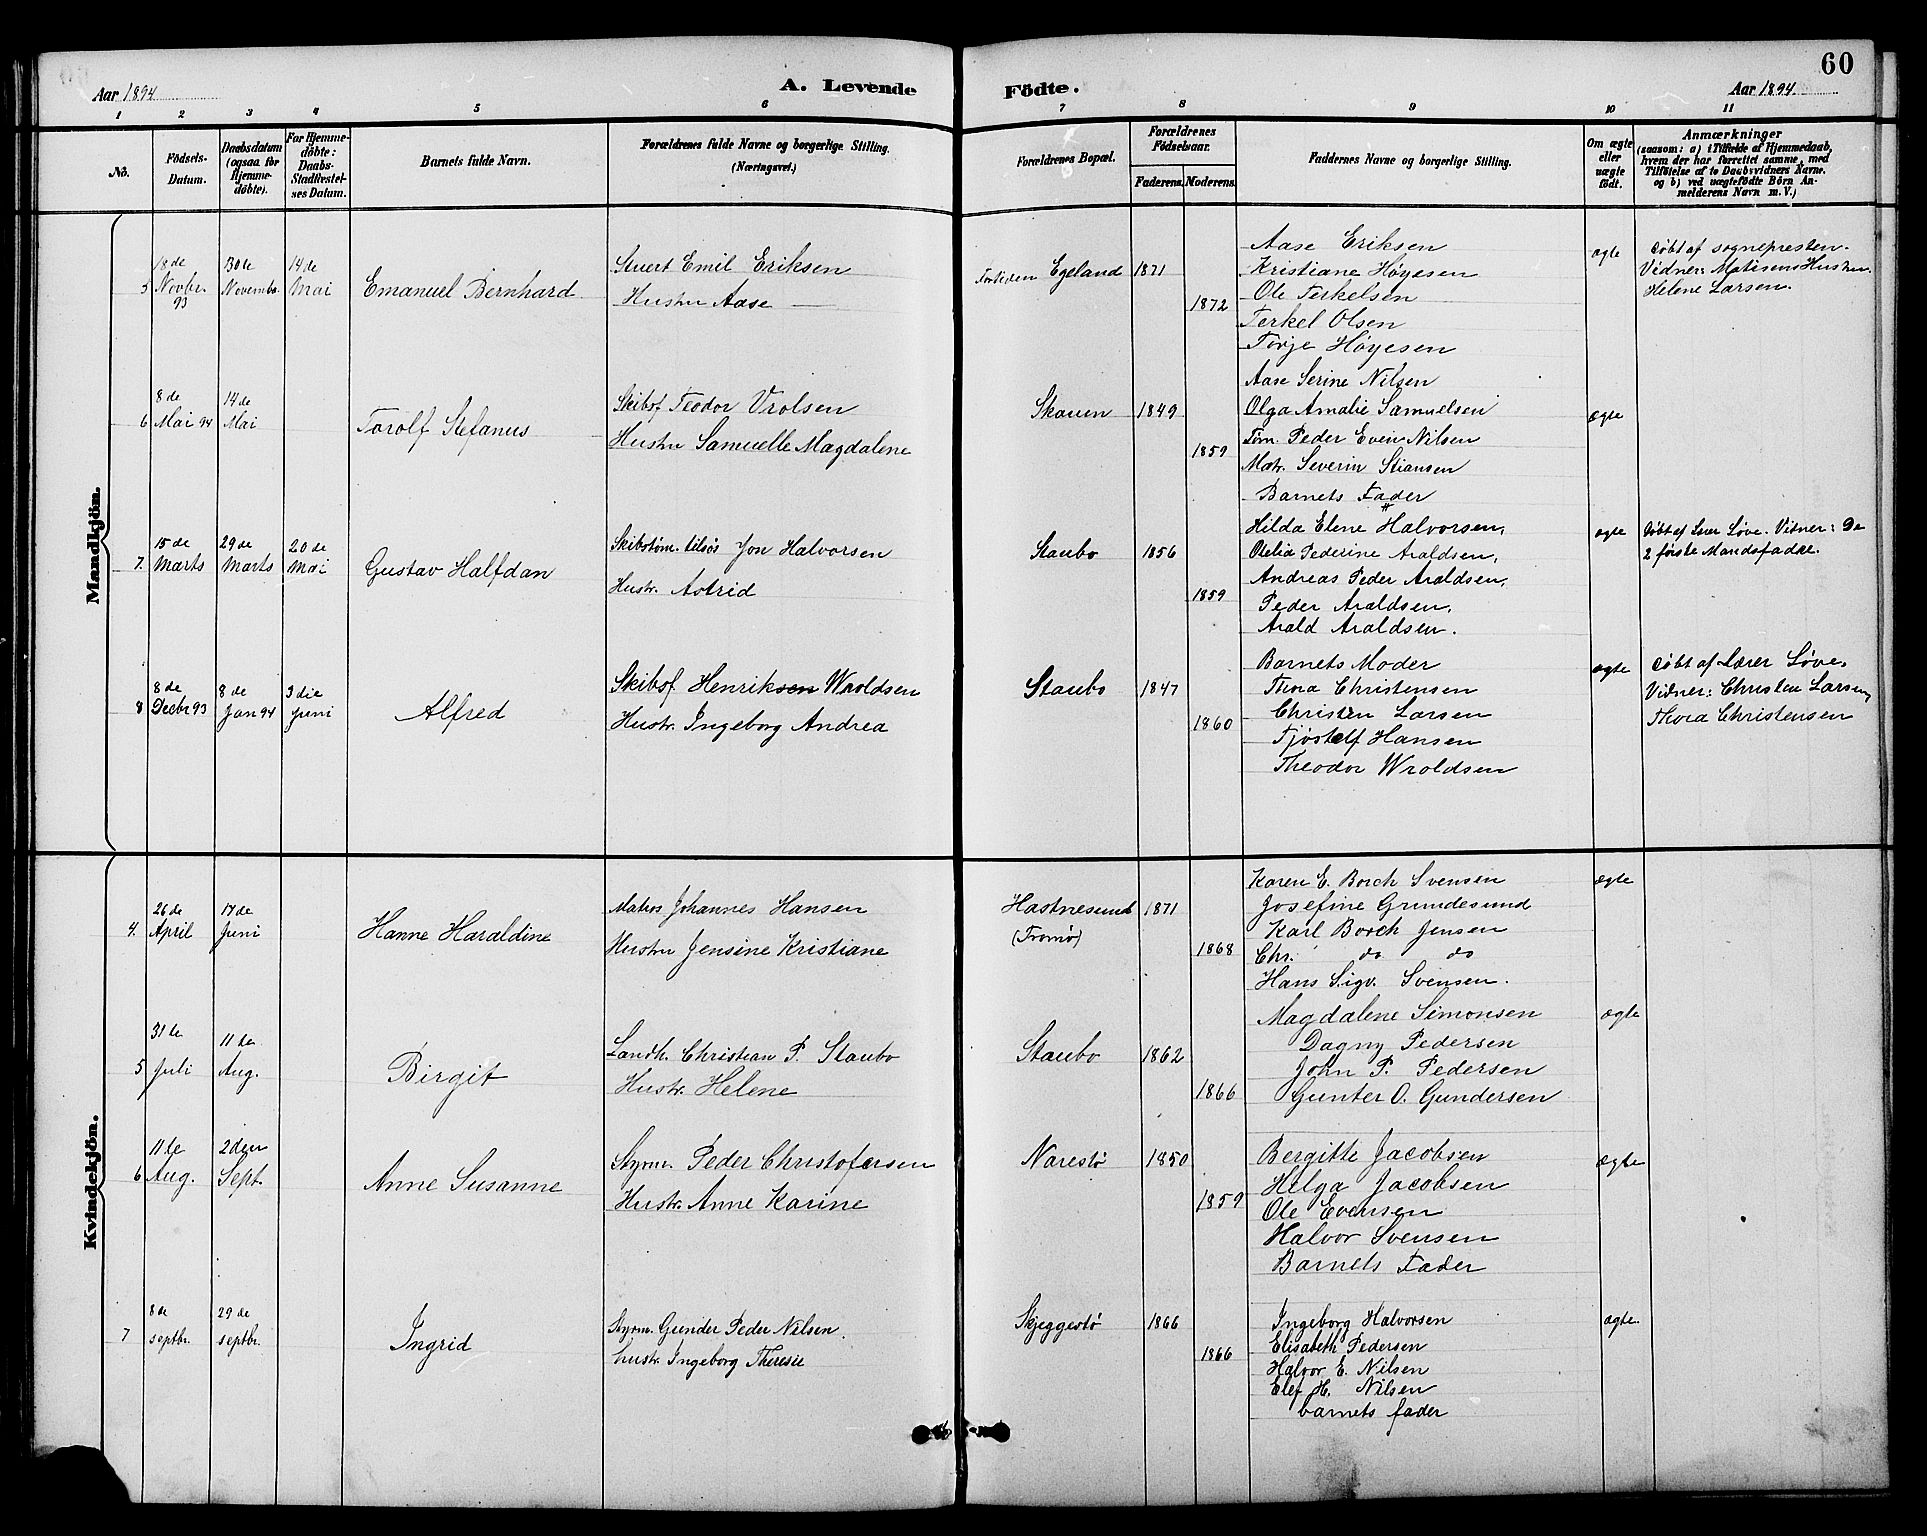 60
Aar 1894
A. Levende Födte.
Aar 1894.
1 2 3 4 5 6 7 8 9 10 11
No.
Födsels-Datum.
Daabsdatum (ogsaa for Hjemme-döbte).
For Hjemme-döbte: Daabs-Stadfæstel-ses Datum.
Barnets fulde Navn.
Forældrenes fulde Navne og borgerlige Stilling.
(Næringsvei.)
Forældrenes Bopæl.
Forældrenes Födselsaar.
Faderens. Moderens.
Faddernes Navne og borgerlige Stilling.
Om ægte eller uægte födt.
Anmærkninger
(saasom: a) i Tilfælde af Hjemmedaab,
hvem der har forrettet samme, med
Tilföielse af to Daabsvidners Navne,
og b) ved uægtefödte Börn An-
melderens Navn m. V.)
Mandkjön.
5
18de Novbr. 93
30te Novembr.
14de Mai
Emanuel Bernhard
Stuert Emil Eriksen
Hustru Aase —
Egeland
1871
1872
Aase Eriksen
Kristiane Høyesen
Ole Terkelsen
Terkel Olsen
Torje Høyesen
ægte
Døbt af sognepresten.
Vidner: Matisens Hustru
Helene Larsen.
6
8de Mai 94
14de Mai
Torolf Stefanus
Skibsf. Teodor Vrolsen
Hustru Samuelle Magdalene
Skauen
1849
1859
Aase Serine Nilsen
Olga Amalie Samuelsen
Tøm. Peder Even Nilsen
Matr. Severin Stiansen
Barnets Fader
ægte
7.
15de Marts
29de Marts
20de Mai
Gustav Halfdan
Skibstøm. tilsøs Jon Halvorsen
Hustr. Astrid
Staubo
1856
1859
Hilda Elene Halvorsen,
Otelia Pederine Araldsen,
Andreas Peder Araldsen,
Peder Araldsen,
Arald Araldsen.
ægte
Døbt af Løve. Vidner: De
2 første Mandsfadre.
8
8de Decbr 93
8de Jan 94
3die Juni
Alfred
Skibsf. Henriksen Wroldsen
Hustr. Ingeborg Andrea
Staubo
1847
1860
Barnets Moder
Thora Christensen
Christen Larsen
Tjøstelf Hansen
Theodor Wroldsen
ægte
Døbt af Lærer Løve.
Vidner: Christen Larsen,
Thora Christensen
Kvindekjön.
4.
26de April
17de Juni
Hanne Haraldine
Matros Johannes Hansen
Hustru Jensine Kristiane
Hastnesund
(Tromø)
1871
1868
Karen E. Borch Svensen
Josefine Grundesund
Karl Borch Jensen
Chr. do do
Hans Sigv. Svensen.
ægte
5
31te Juli
11te Aug.
Birgit
Landh. Christian P. Staubo
Hustr. Helene
Staubo
1862
1866
Magdalene Simonsen
Dagny Pedersen
John P. Pedersen
Gunter O. Gundersen
ægte
6
11te Aug.
2den Sept.
Anne Susanne
Styrm. Peder Christofersen
Hustr. Anne Karine
Narestø
1850
1859
Bergitte Jacobsen
Helga Jacobsen
Ole Evensen
Halvor Svensen
Barnets Fader
ægte
7
8de septbr.
29de septbr.
Ingrid
Styrm. Gunder Peder Nilsen.
hustr. Ingeborg Theresie
Skjeggestø
1866
1866
Ingeborg Halvorsen
Elisabeth Pedersen
Halvor E. Nilsen
Elef H. Nilsen
barnets fader
ægte